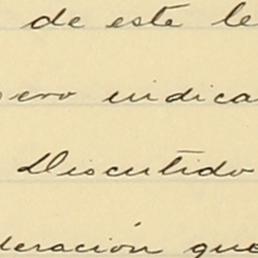 de este le
pero indica
Discutido
deración que